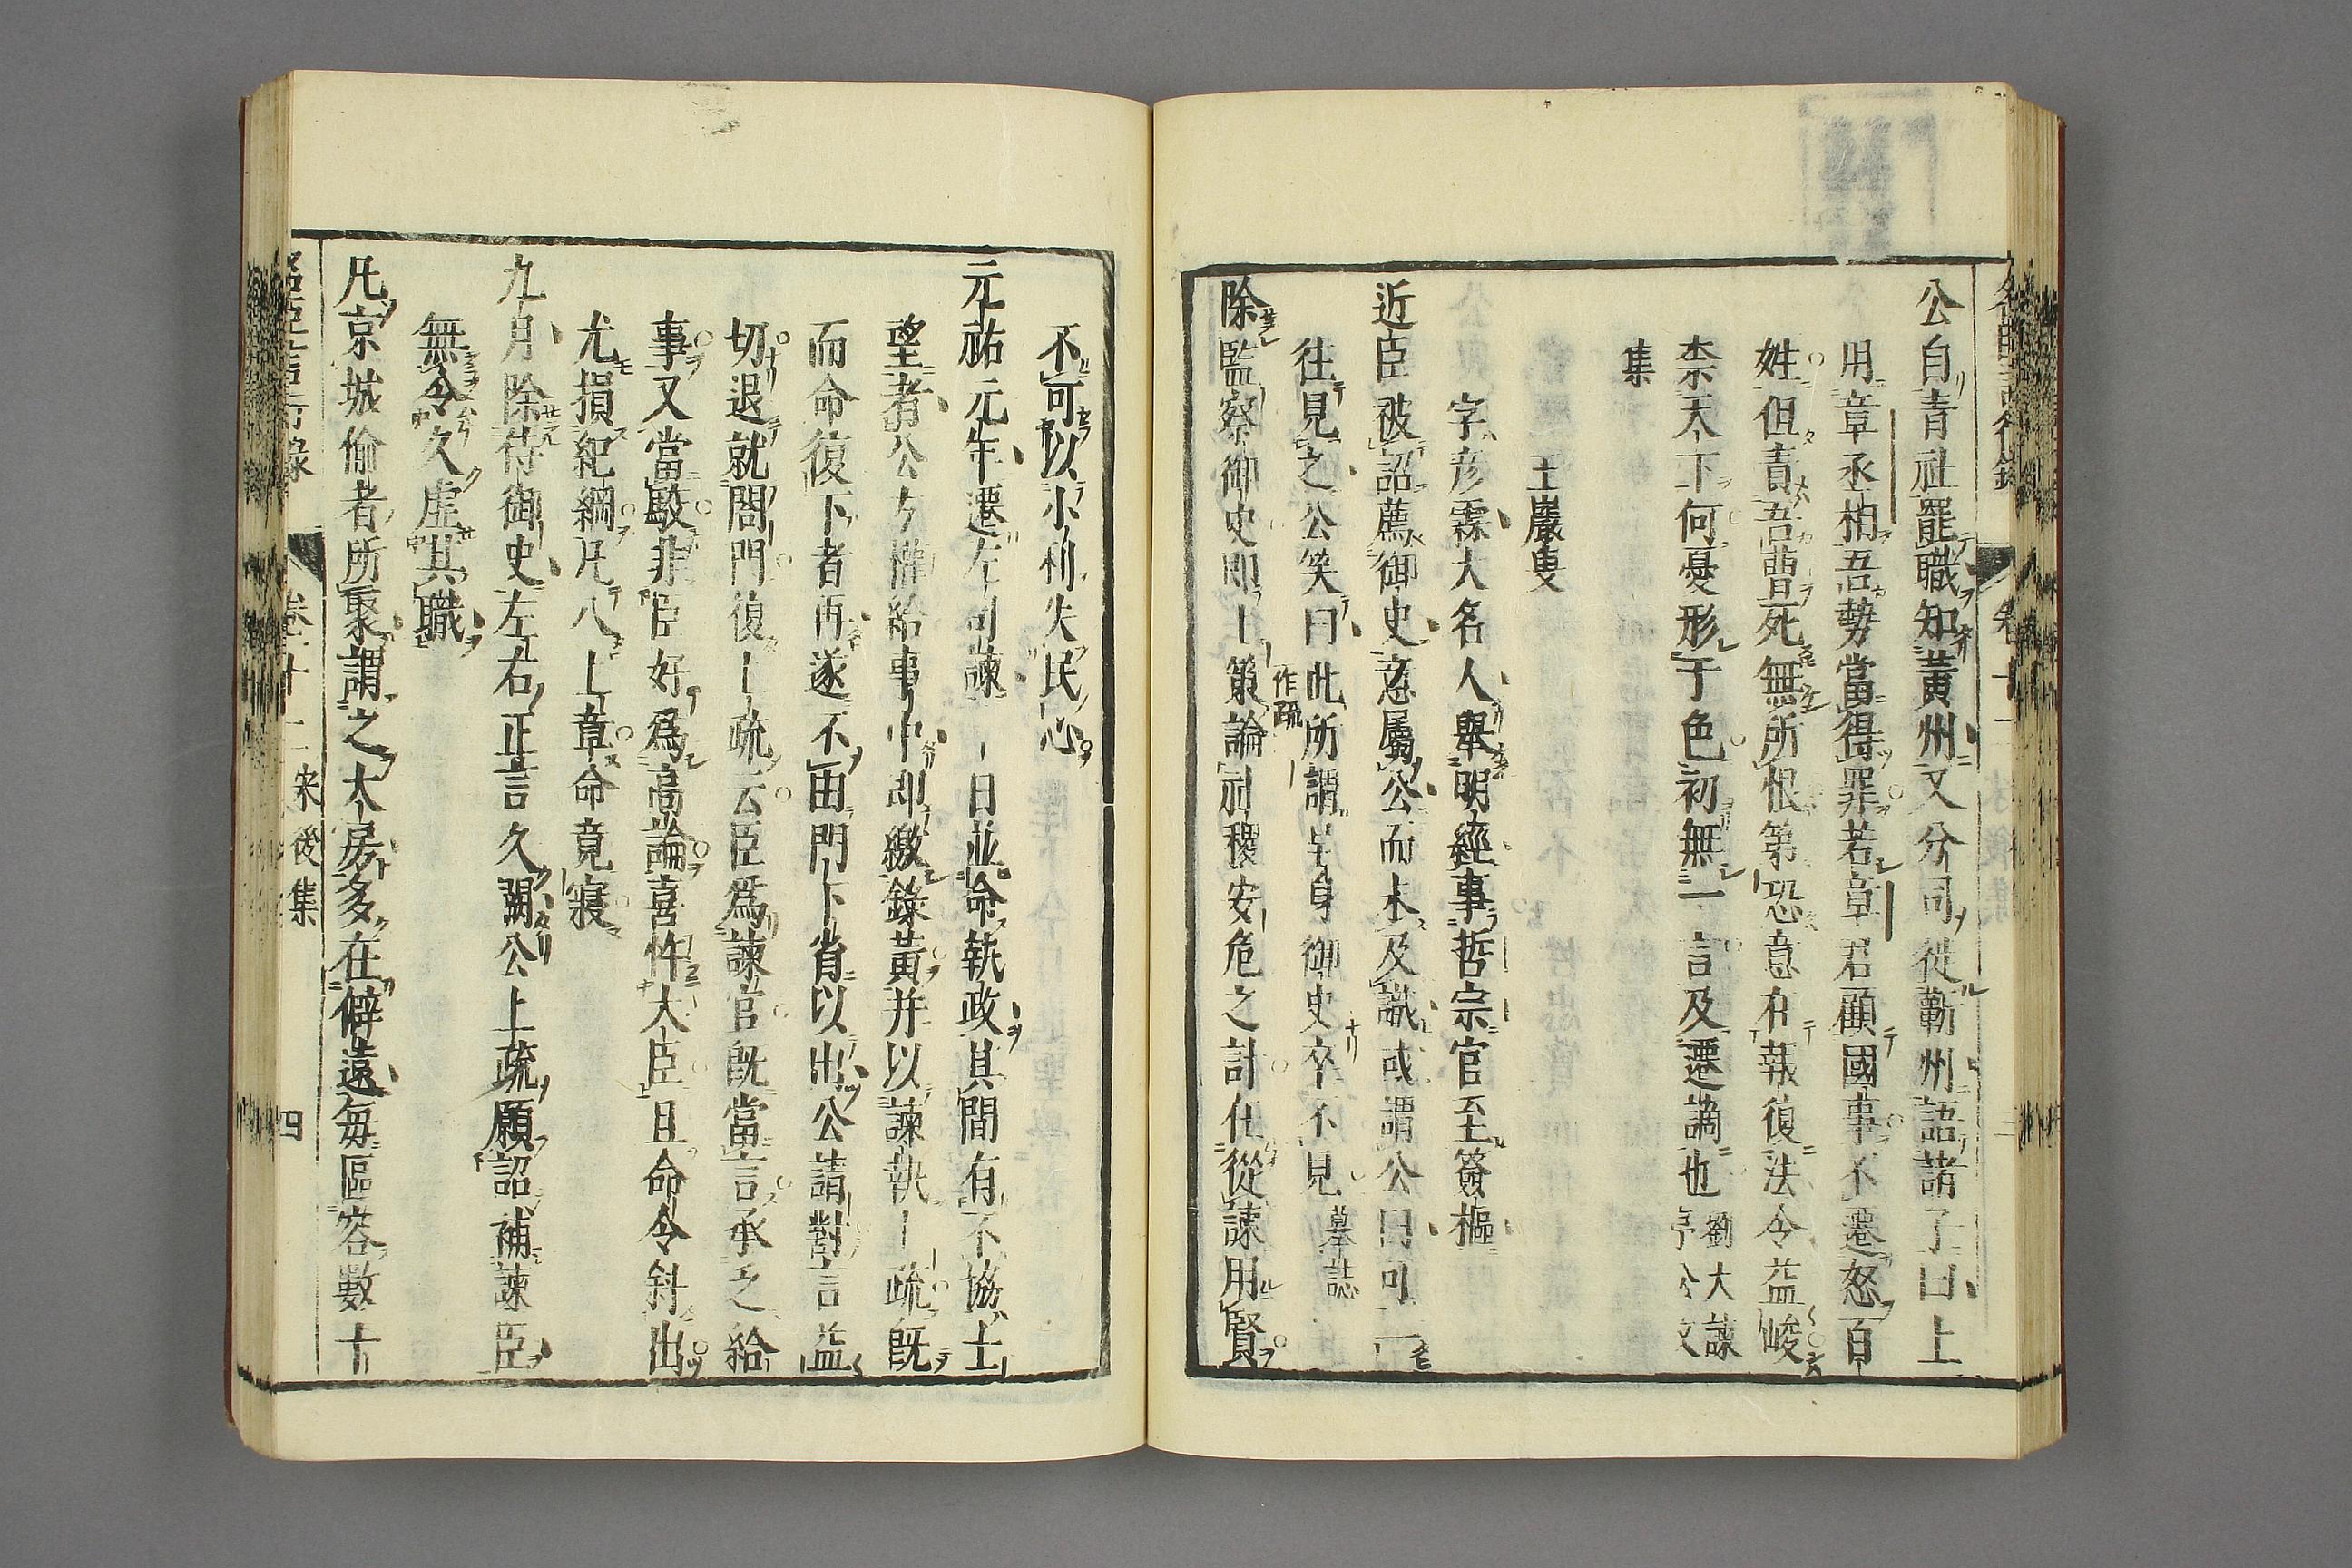 公自青社罷職知黃州又分司徙蘄州語諸子曰上
用章丞相吾勢當得罪若章君顧國事不遷怒百
姓但責吾曹死無所恨第恐意在報復法令益峻
柰天下何憂形于色初無一言及遷謫也劉大諫
集
王巖叟
字彦霖大名人舉明經事哲宗官至簽樞
近臣被詔薦御史意屬公而未及識或謂公曰可一
往見之公笑曰此所謂呈身御史卒不見墓誌
除監察御史即上䇿論社稷安危之計在從諫用賢
作疏
不可以小利失民心
元祐元年遷左司諫一日並命執政其間有不協士
望者公方權給事中即繳錄黃并以諫執上疏既
而命復下者再遂不由門下省以出公請對言益
切退就閤門復上疏云臣爲諫官既當言承乏給
事又當駮非臣好爲高論喜忤大臣且命令斜出
尤損紀綱凡八上章命竟寢
九月除侍御史左右正言久闕公上疏願詔補諫臣
無令久虛其職
凡京城偷者所聚謂之大房多在僻遠每區容數十
卷十二 宋後集 四